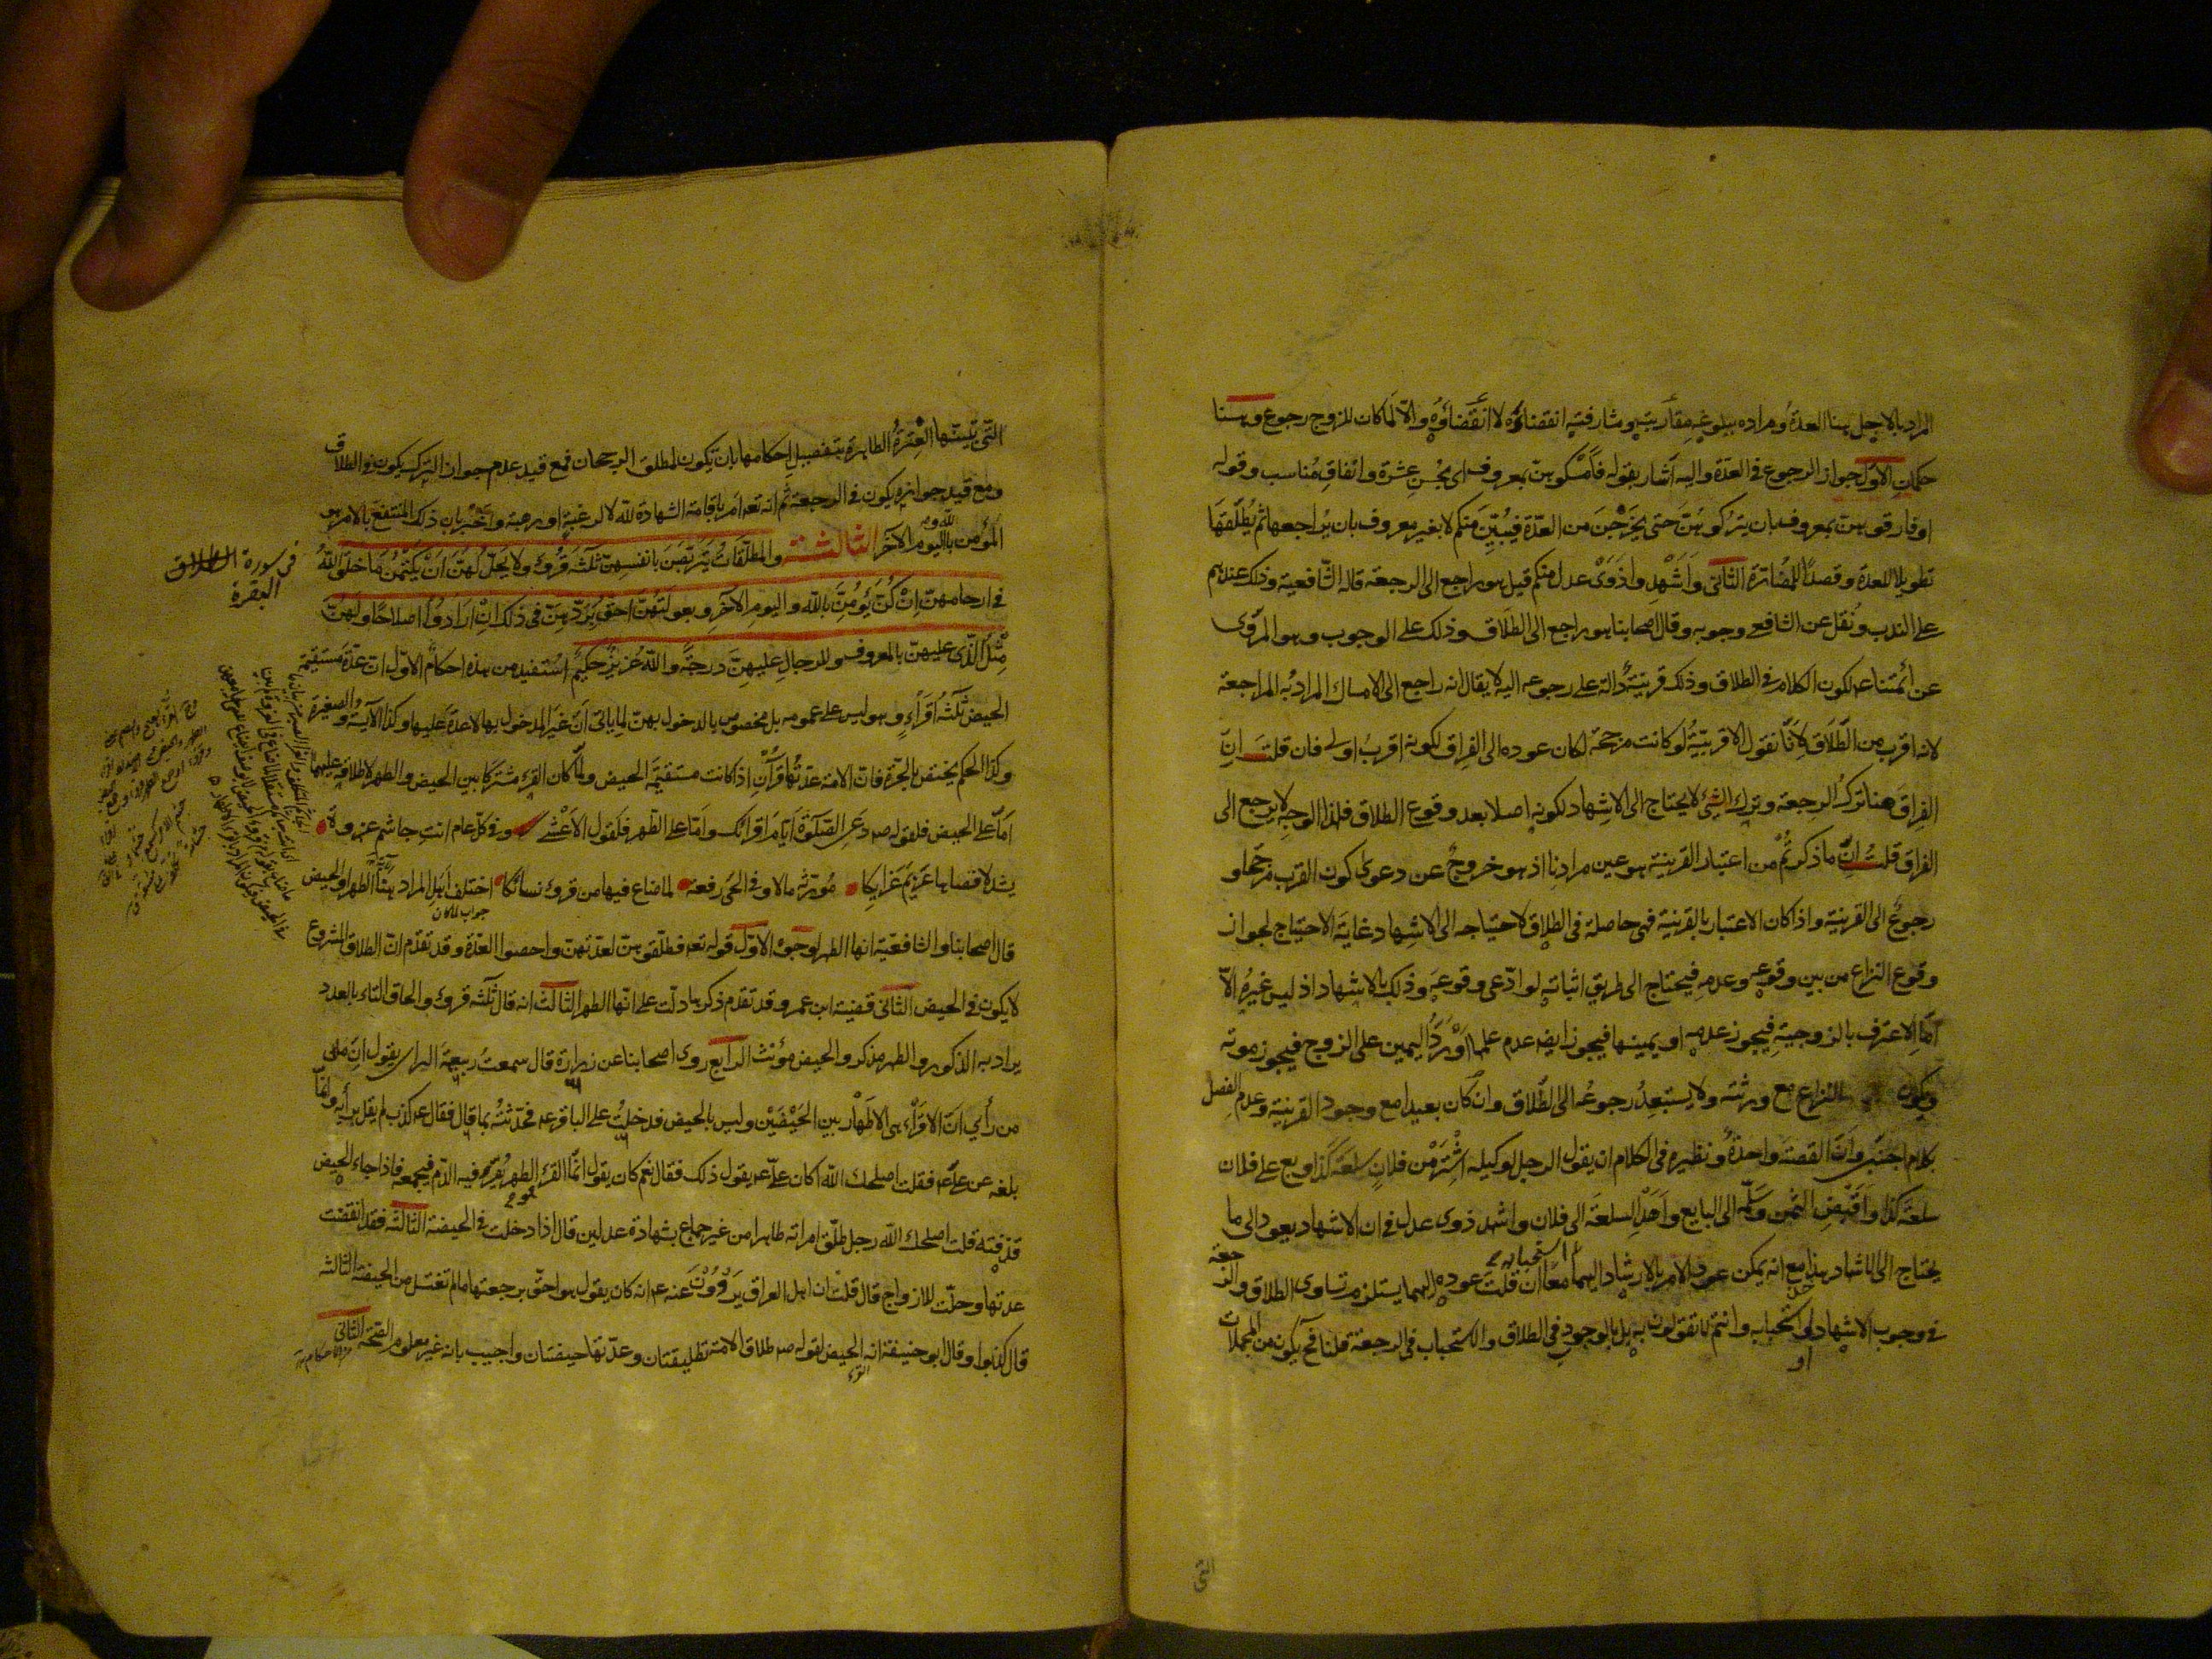 المراد بالاجل هنا العدة ومراده ببلوغه مقاربته ومشارفته انقضاؤه لا انقضاؤه والا لما كان للزوج رجوع وهنا
حكمان الاول جواز الرجوع في العدة واليه اشار بقوله فامسكوهن بمعروف اى بحسن عشرة وانفاق مناسب وقوله
او فارقوهن بمعروف بان يتركوهن حتى يخرجن من العدة فيبن منكم لا بغير معروف بان يراجعها ثم يطلقها
تطويلا للعدة وقصدا للمضارة الثانى واشهدوا ذوى عدل منكم قيل هو راجع الى الرجعة قاله الشافعية وذلك عندهم
على الندب ونقل عن الشافعى وجوبه وقال اصحابنا هو راجع الى الطلاق وذلك على الوجوب وهو المروى
عن ائمتنا عم لكون الكلام فى الطلاق وذلك قرينة دالة على رجوعه اليه لا يقال انه راجع الى الامساك المراد به المراجعة
لانه اقرب من الطلاق لانا نقول الاقربية لو كانت مرجحة لكان عوده الى الفراق لكونه اقرب اولى فان قلت ان
الفراق هنا ترك الرجعة وترك الشئ لا يحتاج الى الاشهاد لكونه اصلا بعد وقوع الطلاق فلهذا الوجه لا يرجع الى
الفراق قلت ان ما ذكرتم من اعتبار القرينة هو عين مرادنا اذ هو خروج عن دعوى كون القرب مرجحا و
رجوع الى القرينة واذا كان الاعتبار بالقرينة فهى حاصلة فى الطلاق لاحتياجه الى الاشهاد غاية الاحتياج لجواز
وقوع النزاع من بين وقوعه وعدمه فيحتاج الى طريق اثباته لو ادعى وقوعه وذلك بالاشهاد اذ ليس غيره الا
اما الاعتراف بالزوجية فيجوز عدمه او يمينها فيجوز ايضا عدم علمها او رد اليمين على الزوج فيجوز موته
ويكون النزاع مع ورثته ولا يستبعد رجوعه الى الطلاق وان كان بعيدا مع وجود القرينة وعدم الفصل
بكلام اجنبى وان القصة واحدة ونظيره فى الكلام ان يقول الرجل لوكيله اشتر من فلان سلعة كذا وبع على فلان
سلعة كذا واقبض الثمن وسلمه الى البايع واحمل السلعة الى فلان واشهد ذوى عدل فان الاشهاد يعود الى ما
يحتاج الى الاشهاد هذا مع انه يمكن عود الامر بالارشاد اليهما معا ان قلت عوده اليهما يستلزم تساوى الطلاق والرجعة
فى وجوب الاشهاد او استحبابه وانتم لا تقولون به بل بالوجوب فى الطلاق والاستحباب فى الرجعة قلنا فح يكون من المجملات
التى
التى بينتها العترة الطاهرة بتفصيل احكامها بان يكون لمطلق الرجحان فمع قيد عدم جواز الترك يكون فى الطلاق
ومع قيد جوازه يكون فى الرجعة ثم انه تعه امر باقامة الشهادة لله لا لرغبة او رهبة واخبر بان ذلك المنتفع بالامر هو
المؤمن بالله واليوم الآخر الثالثة والمطلقات يتربصن بانفسهن ثلثة قروء ولا يحل لهن ان يكتمن ما خلق الله
فى ارحامهن ان كن يؤمن بالله واليوم الآخر وبعولتهن احق بردهن فى ذلك ان ارادوا اصلاحا ولهن
مثل الذى عليهن بالمعروف وللرجال عليهن درجة والله عزيز حكيم استفيد من هذه احكام الاول ان عدة مستقيمة
الحيض ثلثة اقراء وهو ليس على عمومه بل مخصوص بالدخول بهن لما ياتى ان غير المدخول بها لا عدة عليها وكذا الآيسة والصغيرة
وكذا الحكم يختص بالحرة فان الامة عدتها قرآن اذا كانت مستقيمة الحيض ولما كان القرء مشتركا بين الحيض والطهر لاطلاقه عليهما
اما على الحيض فلقوله صه دعى الصلوة ايام اقرائك واما على الطهر فلقول الاعشى وفى كل عام انت جاشم غزوة
يشد لاقصاها عزيم عزايكا مورثة مالا وفى الحى رفعة لما ضاع فيها من قروء نسائكا اختلف اهل المراد هنا الطهر او الحيض
جواب لما كان
قال اصحابنا والشافعية انها الطهر لوجوه الاول قوله تعه فطلقوهن لعدتهن واحصوا العدة وقد تقدم ان الطلاق المشروع
لا يكون فى الحيض الثانى قضية ابن عمر وقد تقدم ذكرها دلت على انها الطهر الثالث انه قال ثلثة قروء والحاق التاء بالعدد
يراد به الذكور والطهر مذكر والحيض مؤنث الرابع روى اصحابنا عن زرارة قال سمعت ربيعة الراى يقول ان من
من رأيى ان الاقراء هى الاطهار بين الحيضين وليس بالحيض فدخلت على الباقر عه فحدثته بما قال فقال عه كذب لم يقل برأيه وانما
بلغه عن على عه فقلت اصلحك الله اكان على عه يقول ذلك فقال نعم كان يقول انما القرء الطهر يقرء فيه الدم فيجمعه فاذا جاء الحيض
قذفته قلت اصلحك الله رجل طلق امراته طاهرا من غير جماع بشهادة عدلين قال اذا دخلت فى الحيضة الثالثة فقد انقضت
عدتها وحلت للازواج قال قلت ان اهل العراق يروون عنه عه انه كان يقول هو احق برجعتها ما لم تغتسل من الحيضة الثالثة
قال كذبوا وقال ابو حنيفة انه الحيض لقوله صه طلاق الامة تطليقتان وعدتها حيضتان واجيب بانه غير معلوم الصحة الثانى
فى سورة
البقرة